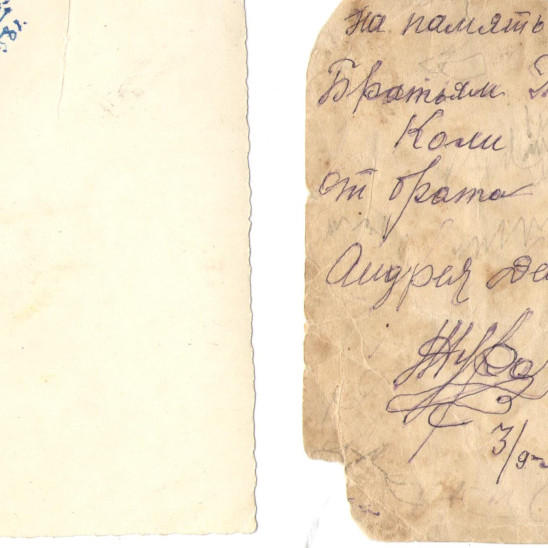 на память
Братьям
Коли
от брата
Андрея
3/9-